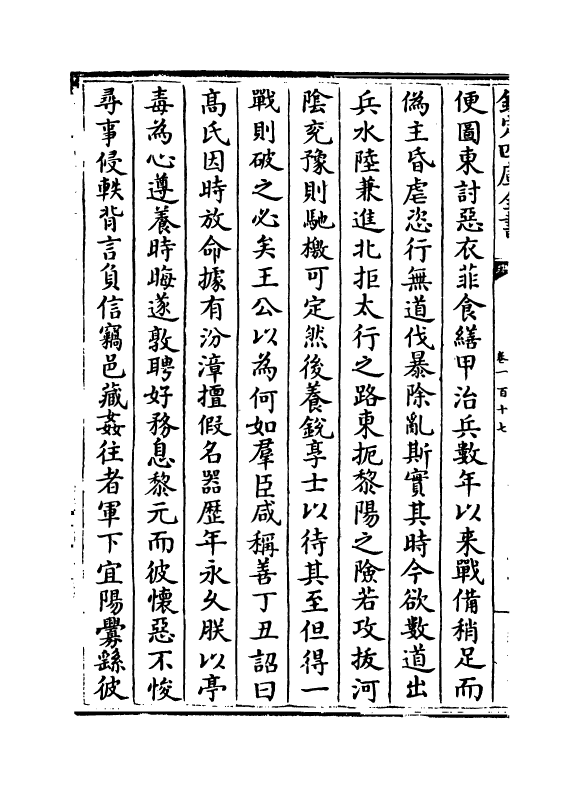 欽定四庫全書
卷一百十七
便圖東討惡衣菲食繕甲治兵數年以来戰備稍足而
偽主昏虐恣行無道伐暴除亂斯實其時今欲數道出
兵水陸兼進北拒太行之路東扼黎陽之險若攻拔河
隂兖豫則馳檄可定然後養銳享士以待其至但得一
戰則破之必矣王公以為何如羣臣咸稱善丁丑詔曰
髙氏因時放命據有汾漳擅假名器歴年永乆朕以亭
毒為心遵養時晦遂敦聘好務息黎元而彼懐惡不悛
尋事侵軼背言負信竊邑藏姦往者軍下宜陽釁繇彼